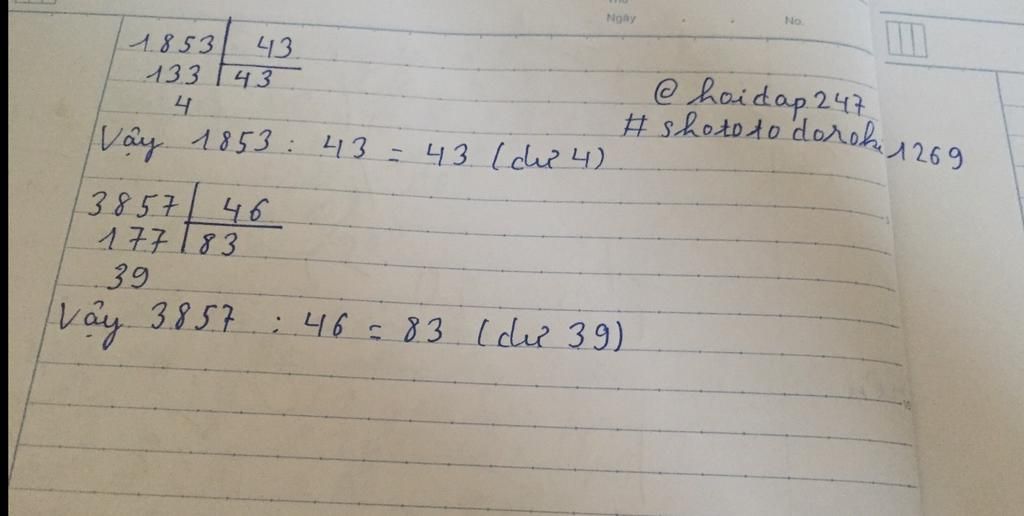 Ngày
No.
1853 43
133 43
4
@ hoidap247
# shototodoroki1269
Vậy 1853 : 43 = 43 (dư 4)
3857 46
177 83
39
Vậy 3857 : 46 = 83 (dư 39)